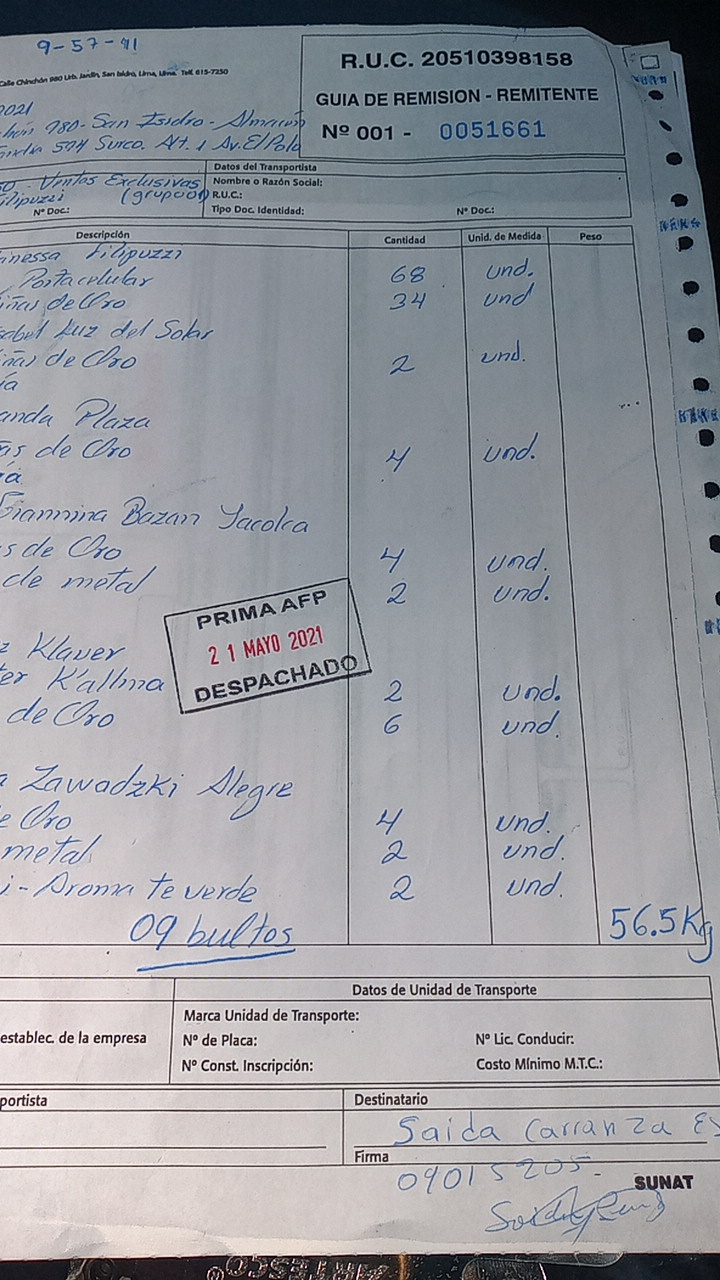 9-57-91
R.U.C. 20510398158
Calle Chinchón 980 Urb. Jardín, San Isidro, Lima, Lima. Telf. 615-7250
GUIA DE REMISION - REMITENTE
2021
980 - San Isidro - Almacén
Nº 001 - 0051661
574 Surco. Alt. 1 Av. El Polo
Datos del Transportista
Ventas Exclusivas
Nombre o Razón Social:
Filipuzzi (grupo01)
R.U.C.:
Nº Doc.:
Tipo Doc. Identidad:
Nº Doc.:
Descripción Cantidad Unid. de Medida Peso
nessa Filipuzzi
Portacelular 68 und.
iñas de Oro 34 und
sabel Luz del Solar
iñas de Oro 2 und.
ía
anda Plaza
as de Oro 4 und.
ía
Giannina Bazan Yacolca
s de Oro 4 und.
de metal 2 und.
PRIMA AFP
21 MAYO 2021
DESPACHADO
z Klaver
ter K'allma 2 und.
de Oro 6 und.
a Zawadzki Alegre
e Oro 4 und.
metal 2 und.
i - Aroma te verde 2 und.
09 bultos 56.5 Kg
Datos de Unidad de Transporte
Marca Unidad de Transporte:
establec. de la empresa
Nº de Placa:
Nº Lic. Conducir:
Nº Const. Inscripción:
Costo Mínimo M.T.C.:
portista
Destinatario
Saida Carranza Es
Firma
09015205.
SUNAT